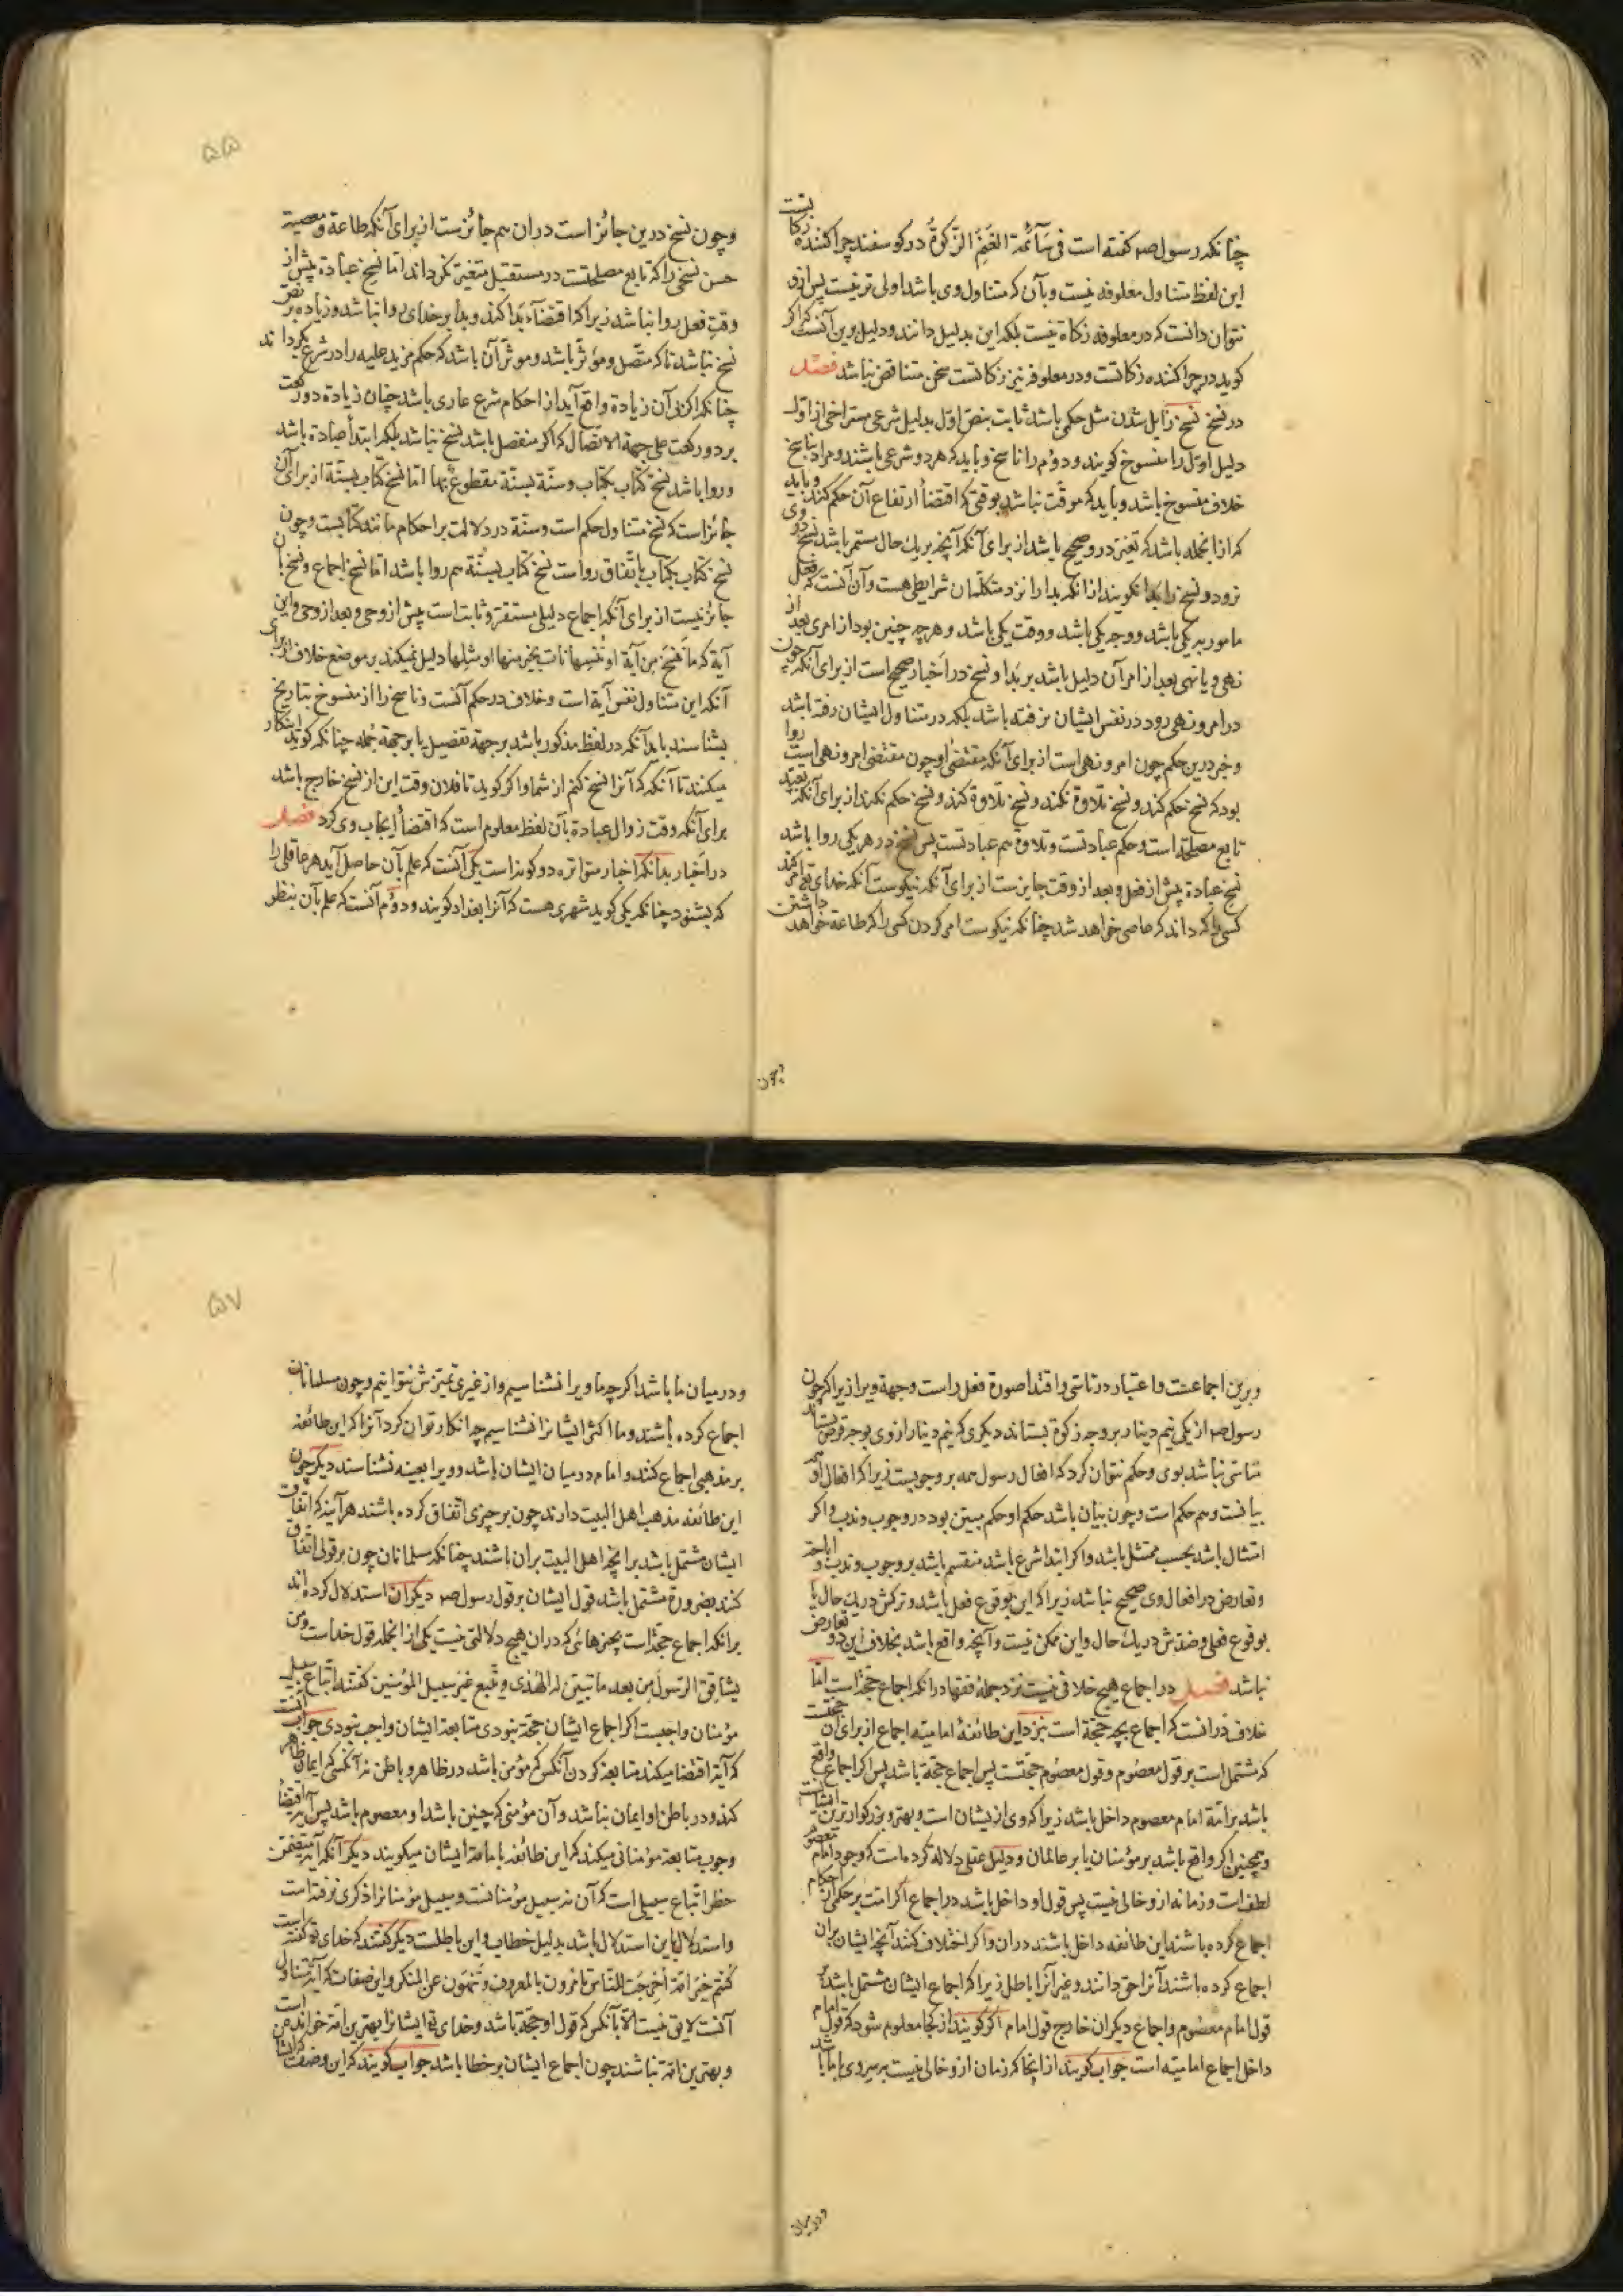 چنانکه رسول صم کفته است فی سَآئِمَة الغَنَمِ الزَّکوةُ در کوسفند چراکننده زکاتست
این لفظ متناول معلوفه نیست و بآن که متناول وی باشد اولی تر نیست پس ازو
نتوان دانست که در معلوفه زکاة نیست بلکه این بدلیل دانند و دلیل برین آنست که اکر
کوید در چراکننده زکاتست و در معلوفه نیز زکاتست سخن متناقض نباشد فصل
در نسخ نسخ زایل شدن مثل حکمی باشد ثابت بنص اول بدلیل شرعی متراخی از اول
دلیل اوّل را منسوخ کویند و دوم را ناسخ و باید که هر دو شرعی باشند و مراد بناسخ
خلاف منسوخ باشد و باید که موقّت نباشد بوقتی که اقتضأ ارتفاع آن حکم کند و باید
که از آنجمله باشد که تغیّر درو صحیح باشد از برای آنکه آنچه بر یک حال مستمر باشد نسخ درو
نرود و نسخ را بدا نکویند از آنکه بدا را نزد متکلّمان شرایطی هست و آن آنست که فعل
مامور به یکی باشد و وجه یکی باشد و وقت یکی باشد و هر چه چنین بود از امری بعد از
نهی و یا نهی بعد از امر آن دلیل باشد بر بدا و نسخ در اخبار صحیح است از برای آنکه چون
در امر و نهی رود در نفس ایشان نرفته باشد بلکه در متناول ایشان رفته باشد
و خبر درین حکم چون امر و نهی است از برای آنکه مقتضی او چون مقتضی امر و نهی است روا
بود که نسخ حکم کند و نسخ تلاوة نکند و نسخ تلاوة کند و نسخ حکم نکند از برای آنکه تعبد
تابع مصلحة است و حکم عبادتست و تلاوة هم عبادتست پس نسخ در هر یکی روا باشد
نسخ عبادة پیش از فعل و بعد از وقت جایزست از برای آنکه نیکوست آنکه خدای تع امر کند
کسی را که داند که عاصی خواهد شد چنانکه نیکوست امر کردن کسی را که طاعة خواهد داشتن
۵۵
و چون نسخ درین جائز است در ان هم جائزست از برای آنکه طاعة و معصیة
حسن نسخی را که تابع مصلحتست در مستقبل متغیّر نکرداند اما نسخ عبادة پیش از
وقت فعل روا نباشد زیرا که اقتضآء بَدا کند و بدأ بر خدای روا نباشد و زیاده بر نصّ
نسخ نباشد تا که متّصل و مؤثّر باشد و مؤثّر آن باشد که حکم مزید علیه را در شرع بکرداند
چنانکه اکر بی آن زیادة واقع آید از احکام شرع عاری باشد چنان زیادة دو رکعت
بر دو رکعت علی جهة الاتصال که اکر منفصل باشد نسخ نباشد بلکه ابتدأ عبادة باشد
و روا باشد نسخ کتاب بکتاب و سنّة بسنّة مقطوعٌ بها امّا نسخ کتاب بسنّة از برای آن
جائز است که نسخ متناول حکم است و سنّة در دلالت بر احکام مانند کتابست و چون
نسخ کتاب بکتاب باتّفاق رواست نسخ کتاب بسنّة هم روا باشد اما نسخ اجماع و نسخ بآن
جائز نیست از برای آنکه اجماع دلیلی مستقر و ثابت است پیش از وحی و بعد از وحی و این
آیة که ما نَنسَخ مِن آیة او نُنسِها نات بخیر منها او مثلها دلیل نمیکند بر موضع خلاف از برای
آنکه این متناول نفس آیة است و خلاف در حکم آنست و ناسخ را از منسوخ بتاریخ
بشناسند یا بدآنکه در لفظ مذکور باشد بر جهة تفصیل یا بر جهة جمله چنانکه کوید اینکار
میکنند تا آنکه که آنرا نسخ کنم از شما و اکر کوید تا فلان وقت این از نسخ خارج باشد
برای آنکه وقت زوال عبادة بآن لفظ معلوم است که اقتضأ ایجاب وی کرد فصل
در اخبار بدانکه اخبار متواتره دو کونه است یکی آنست که علم بآن حاصل آید هر عاقلی را
که بشنود چنانکه یکی کوید شهری هست که آنرا بغداد کویند و دوّم آنست که علم بآن بنظر
و برین اجماعست و اعتبار در تاسّی و اقتدا صورة فعل راست و جهة ویرا زیرا که چون
رسول صم از یکی نیم دینار بر وجه زکوة بستاند دیکری که نیم دینار از وی بوجه قرض بستاند
متاسّی نباشد بوی و حکم نتوان کرد که افعال رسول همه بر وجوبست زیرا که افعال او همه
بیانست و هم حکم است و چون بیان باشد حکم او حکم مبیّن بود در وجوب و ندب و اکر
امتثال باشد بحسب ممتثل باشد و اکر ابتدا شرع باشد منقسم باشد بر وجوب و ندب و اباحة
و تعارض در افعال وی صحیح نباشد زیرا که این بوقوع فعل باشد و ترکش در یک حال یا
بوقوع فعل و ضدش در یک حال و این ممکن نیست و آنچه واقع باشد بخلاف این دو تعارض
نباشد فصل در اجماع هیچ خلافی نیست نزد جملهٔ فقها در انکه اجماع حجّة است امّا
خلاف در انست که اجماع بچه حجّة است نزد این طائفهٔ امامیّه اجماع از برای آن حجّتست
که مشتمل است بر قول معصُوم و قول معصُوم حجّتست پس اجماع حجّة باشد پس اکر اجماع واقع
باشد بر امّة امام معصوم داخل باشد زیرا که وی از یشان است و بهتر و بزرکوارترین ایشانست
و همچنین اکر واقع باشد بر مؤمنان یا بر عالمان و دلیل عقلی دلالة کرده است که وجود امام معصوم
لطفست و زمانه ازو خالی نیست پس قول او داخل باشد در اجماع اکر امّت بر حکمی از احکام
اجماع کرده باشند این طائفه داخل باشند در ان و اکر اختلاف کنند آنچه ایشان بران
اجماع کرده باشند آنرا حق دانند و غیر آنرا باطل زیرا که اجماع ایشان مشتمل باشد بر
قول امام معصُوم و اجماع دیکران خارج قول امام اکر کویند از کجا معلوم شود که قول امام
داخل اجماع امامیّه است جواب کویند از آنجا که زمان ازو خالی نیست بر سر وی باما باشد
۵۷
و در میان ما باشد اکر چه ما ویرا نشناسیم و از غیری تمیزش نتوانیم و چون مسلمانان
اجماع کرده باشند و ما اکثر ایشانرا نشناسیم چه انکار توان کرد آنرا که این طائفه
بر مذهبی اجماع کنند و امام در میان ایشان باشد و ویرا بعینه نشناسند دیکر چون
این طائفه مذهب اهل البیت دارند چون بر چیزی اتّفاق کرده باشند هر آینه که اتّفاق
ایشان مشتمل باشد بر انچه اهل البیت بران باشند چنانکه مسلمانان چون بر قولی اتّفاق
کنند بضرورة مشتمل باشد قول ایشان بر قول رسول صم دیکران استدلال کرده اند
بر انکه اجماع حجّة است بچیزهائی که دران هیچ دلالتی نیست یکی از آنجمله قول خداست و من
یشاقق الرّسولَ مِن بعد ما تبیّن له الهُدی و یتّبع غیرَ سبیل المؤمنین کفتند اتّباع سبیل
مؤمنان واجبست اکر اجماع ایشان حجّة نبودی متابعة ایشان واجب نبودی جواب آنست
که آیة اقتضا میکند متابعة کردن آنکس که مؤمن باشد در ظاهر و باطن نه آنکسی که ایمان ظاهر
کند و در باطن او ایمان نباشد و آن مؤمنی که چنین باشد او معصوم باشد پس آیة اقتضأ
وجوب متابعة مؤمنانی میکند که این طائفه بامامة ایشان میکویند دیکر آنکه آیة متضمن
حظر اتّباع سبیلی است که آن نه سبیل مؤمنانست و سبیل مؤمنانرا ذکری نرفته است
و استدلال باین استدلال باشد بدلیل خطاب و این باطلست دیکر کفتند که خدای تع کفته است
کنتم خیرَ امّة اُخرِجَت للنّاس تامُرون بالمعروف و تَنهَون عن المنکر و این صفات که آیة متناول
آنست لایق نیست الّا بآنکس که قول او حجّة باشد و خدای تع ایشانرا بهترین امّة خوانده است
و بهترین امّة نباشند چون اجماع ایشان بر خطا باشد جواب کویند که این وصفست